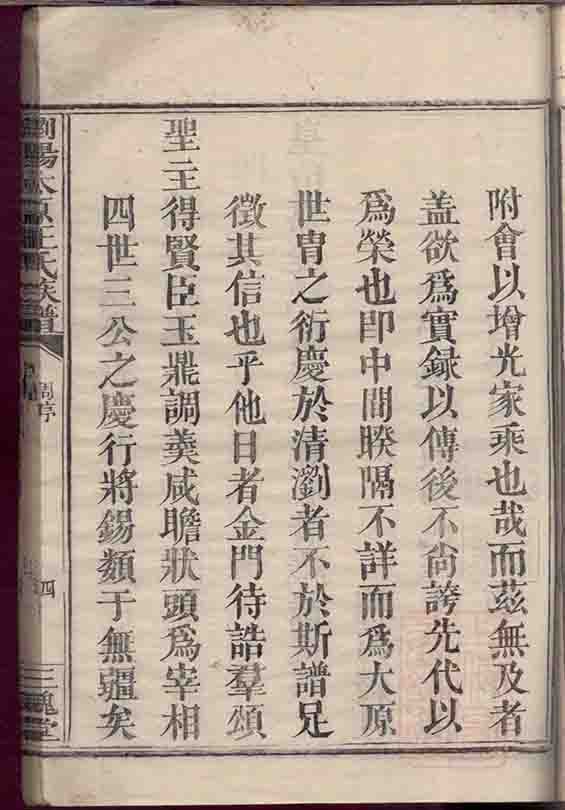 附會以增光家乘也哉而茲無及者
盖欲爲實録以傳後不尙誇先代以
爲榮也卽中間睽隔不詳而爲大原
世胄之衍慶於清瀏者不於斯譜足
徵其信也乎他日者金門待詔羣頌
聖主得賢臣玉鼎調羹咸瞻狀頭爲宰相
四世三公之慶行將錫類于無疆矣
瀏陽太原王氏族譜
周序
四
三槐堂